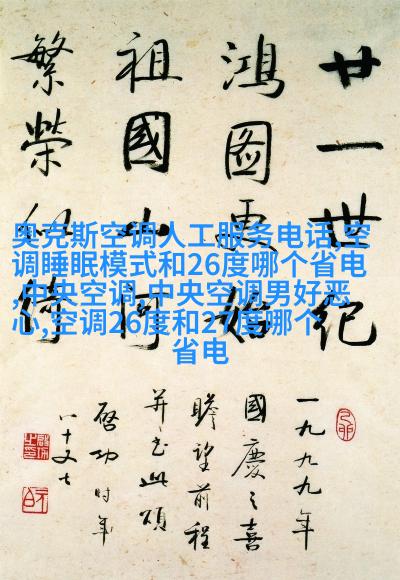 廿一世紀
鴻圖更始
祖國山河
繁榮似綺
一九九九年
國慶之喜
瞻望前程
并书此頌
啓功时年
八十又七
奥克斯空调人工服务电话,空
调睡眠模式和26度哪个省电
,中央空调,中央空调男好恶
心,空调26度和27度哪个
省电